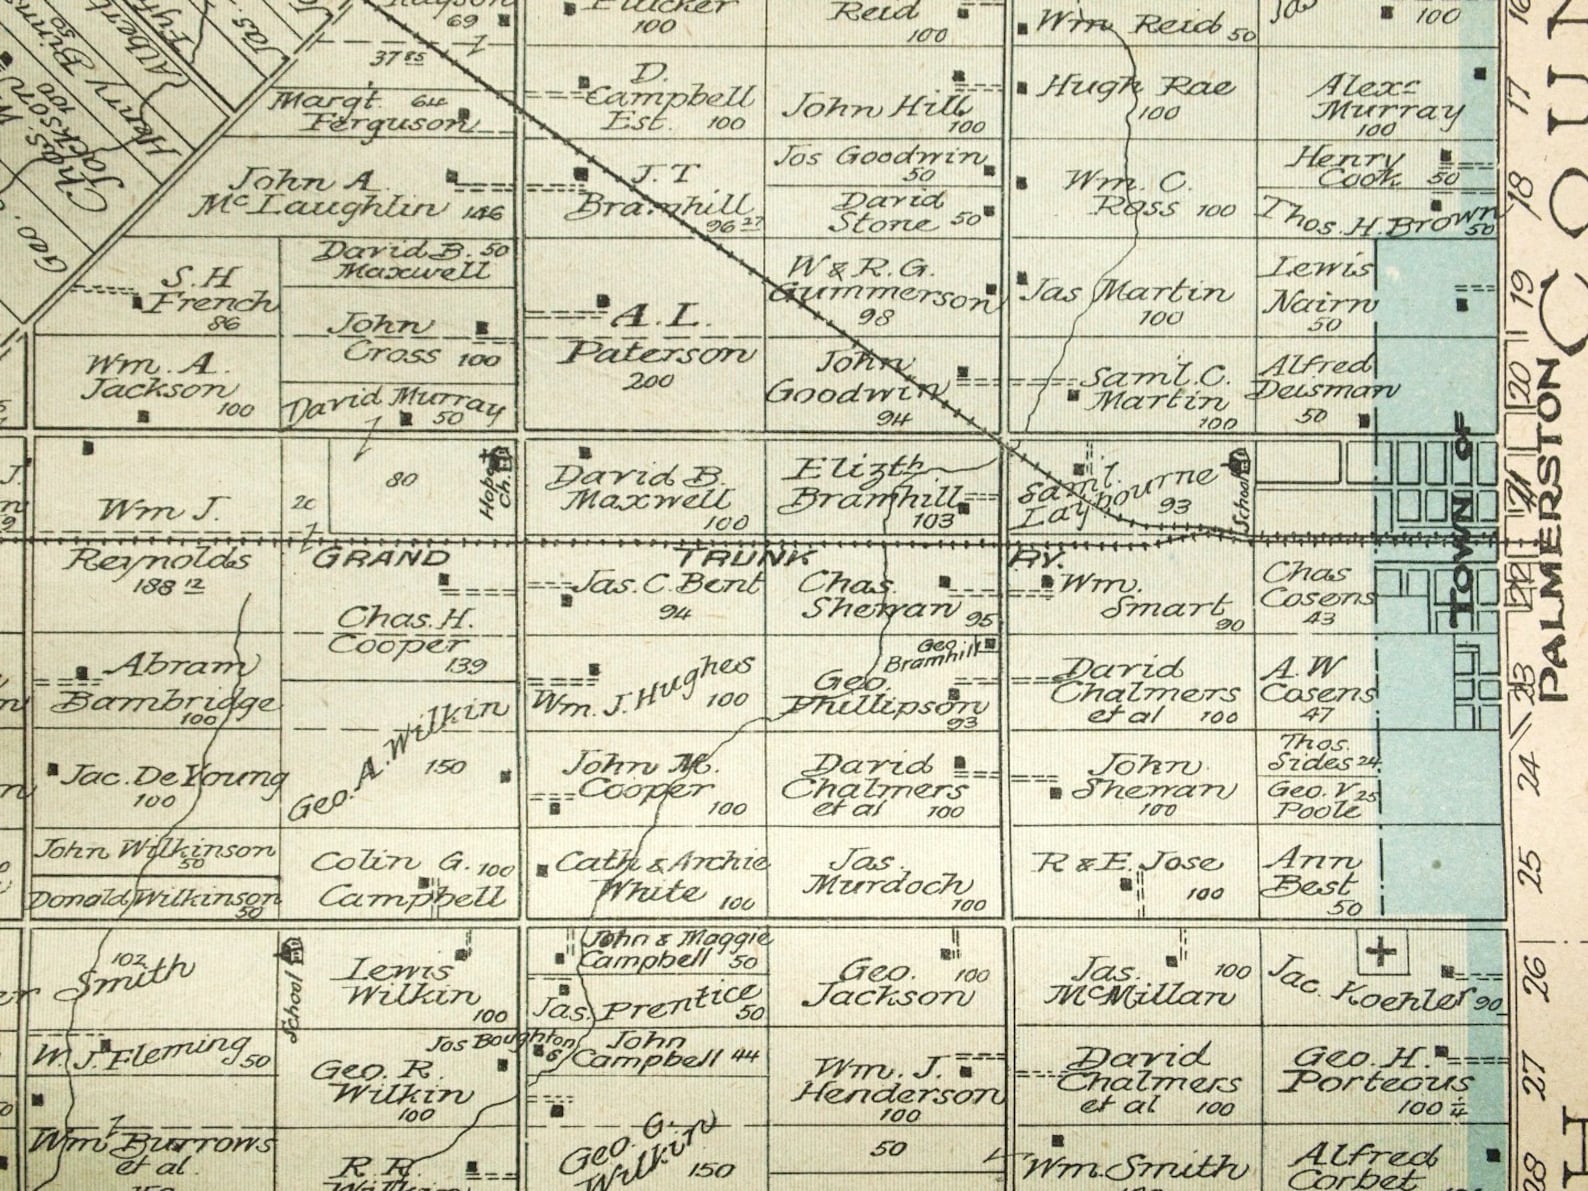 69
Flucker
100
Reid
100
Wm Reid 50
100
16
37 85
Margt. 64
Ferguson
D.
Campbell
Est. 100
John Hill
100
Hugh Rae
100
Alexr
Murray
100
17
Albert
Henry
Chas. W.
Jackson
100
Geo.
Jas.
John A.
McLaughlin 146
J. T
Bramhill
96 27
Jos Goodwin
50
David
Stone 50
Wm. C.
Ross 100
Henry
Cook 50
Thos. H. Brown
50
18
S. H
French
86
David B. 50
Maxwell
John
Cross 100
A. L.
Paterson
200
W & R. G.
Gummerson
98
Jas Martin
100
Lewis
Nairn
50
19
Wm. A.
Jackson
100
David Murray
50
John
Goodwin
94
Saml. C.
Martin
100
Alfred
Deisman
50
20
Wm J.
Reynolds
188 12
80
Hope
Ch.
David B.
Maxwell
100
Elizth
Bramhill
103
Saml.
Laybourne
93
School
TOWN OF
PALMERSTON
COUN
21
GRAND TRUNK RY.
Chas. H.
Cooper
139
Jas. C. Bent
94
Chas.
Shewan 95
Wm.
Smart
90
Chas
Cosens
43
22
Abram
Bambridge
100
Geo. A. Wilkin
150
Wm. J. Hughes
100
Geo.
Bramhill
Geo
Phillipson
93
David
Chalmers
et al 100
A. W
Cosens
47
23
Jac. DeYoung
100
John M.
Cooper
100
David
Chalmers
et al 100
John
Shewan
100
Thos.
Sides 24
Geo. V 25
Poole
24
John Wilkinson
50
Donald Wilkinson
50
Colin G. 100
Campbell
Cath & Archie
White 100
Jas.
Murdoch
100
R & E. Jose
100
Ann
Best
50
25
102
Smith
School
Lewis
Wilkin
100
John & Maggie
Campbell 50
Jas. Prentice
50
Geo. 100
Jackson
Jas. 100
McMillan
Jac. Koehler 90
26
W. J. Fleming 50
Jos Boughton
6
Geo. R.
Wilkin
100
John
Campbell 44
Wm. J.
Henderson
100
David
Chalmers
et al 100
Geo. H.
Porteous
100 1/4
27
Wm Burrows
et al.
R. R.
Wilkin
Geo. G.
Wilkin
150
50
Wm. Smith
Alfred
Corbet
28
H